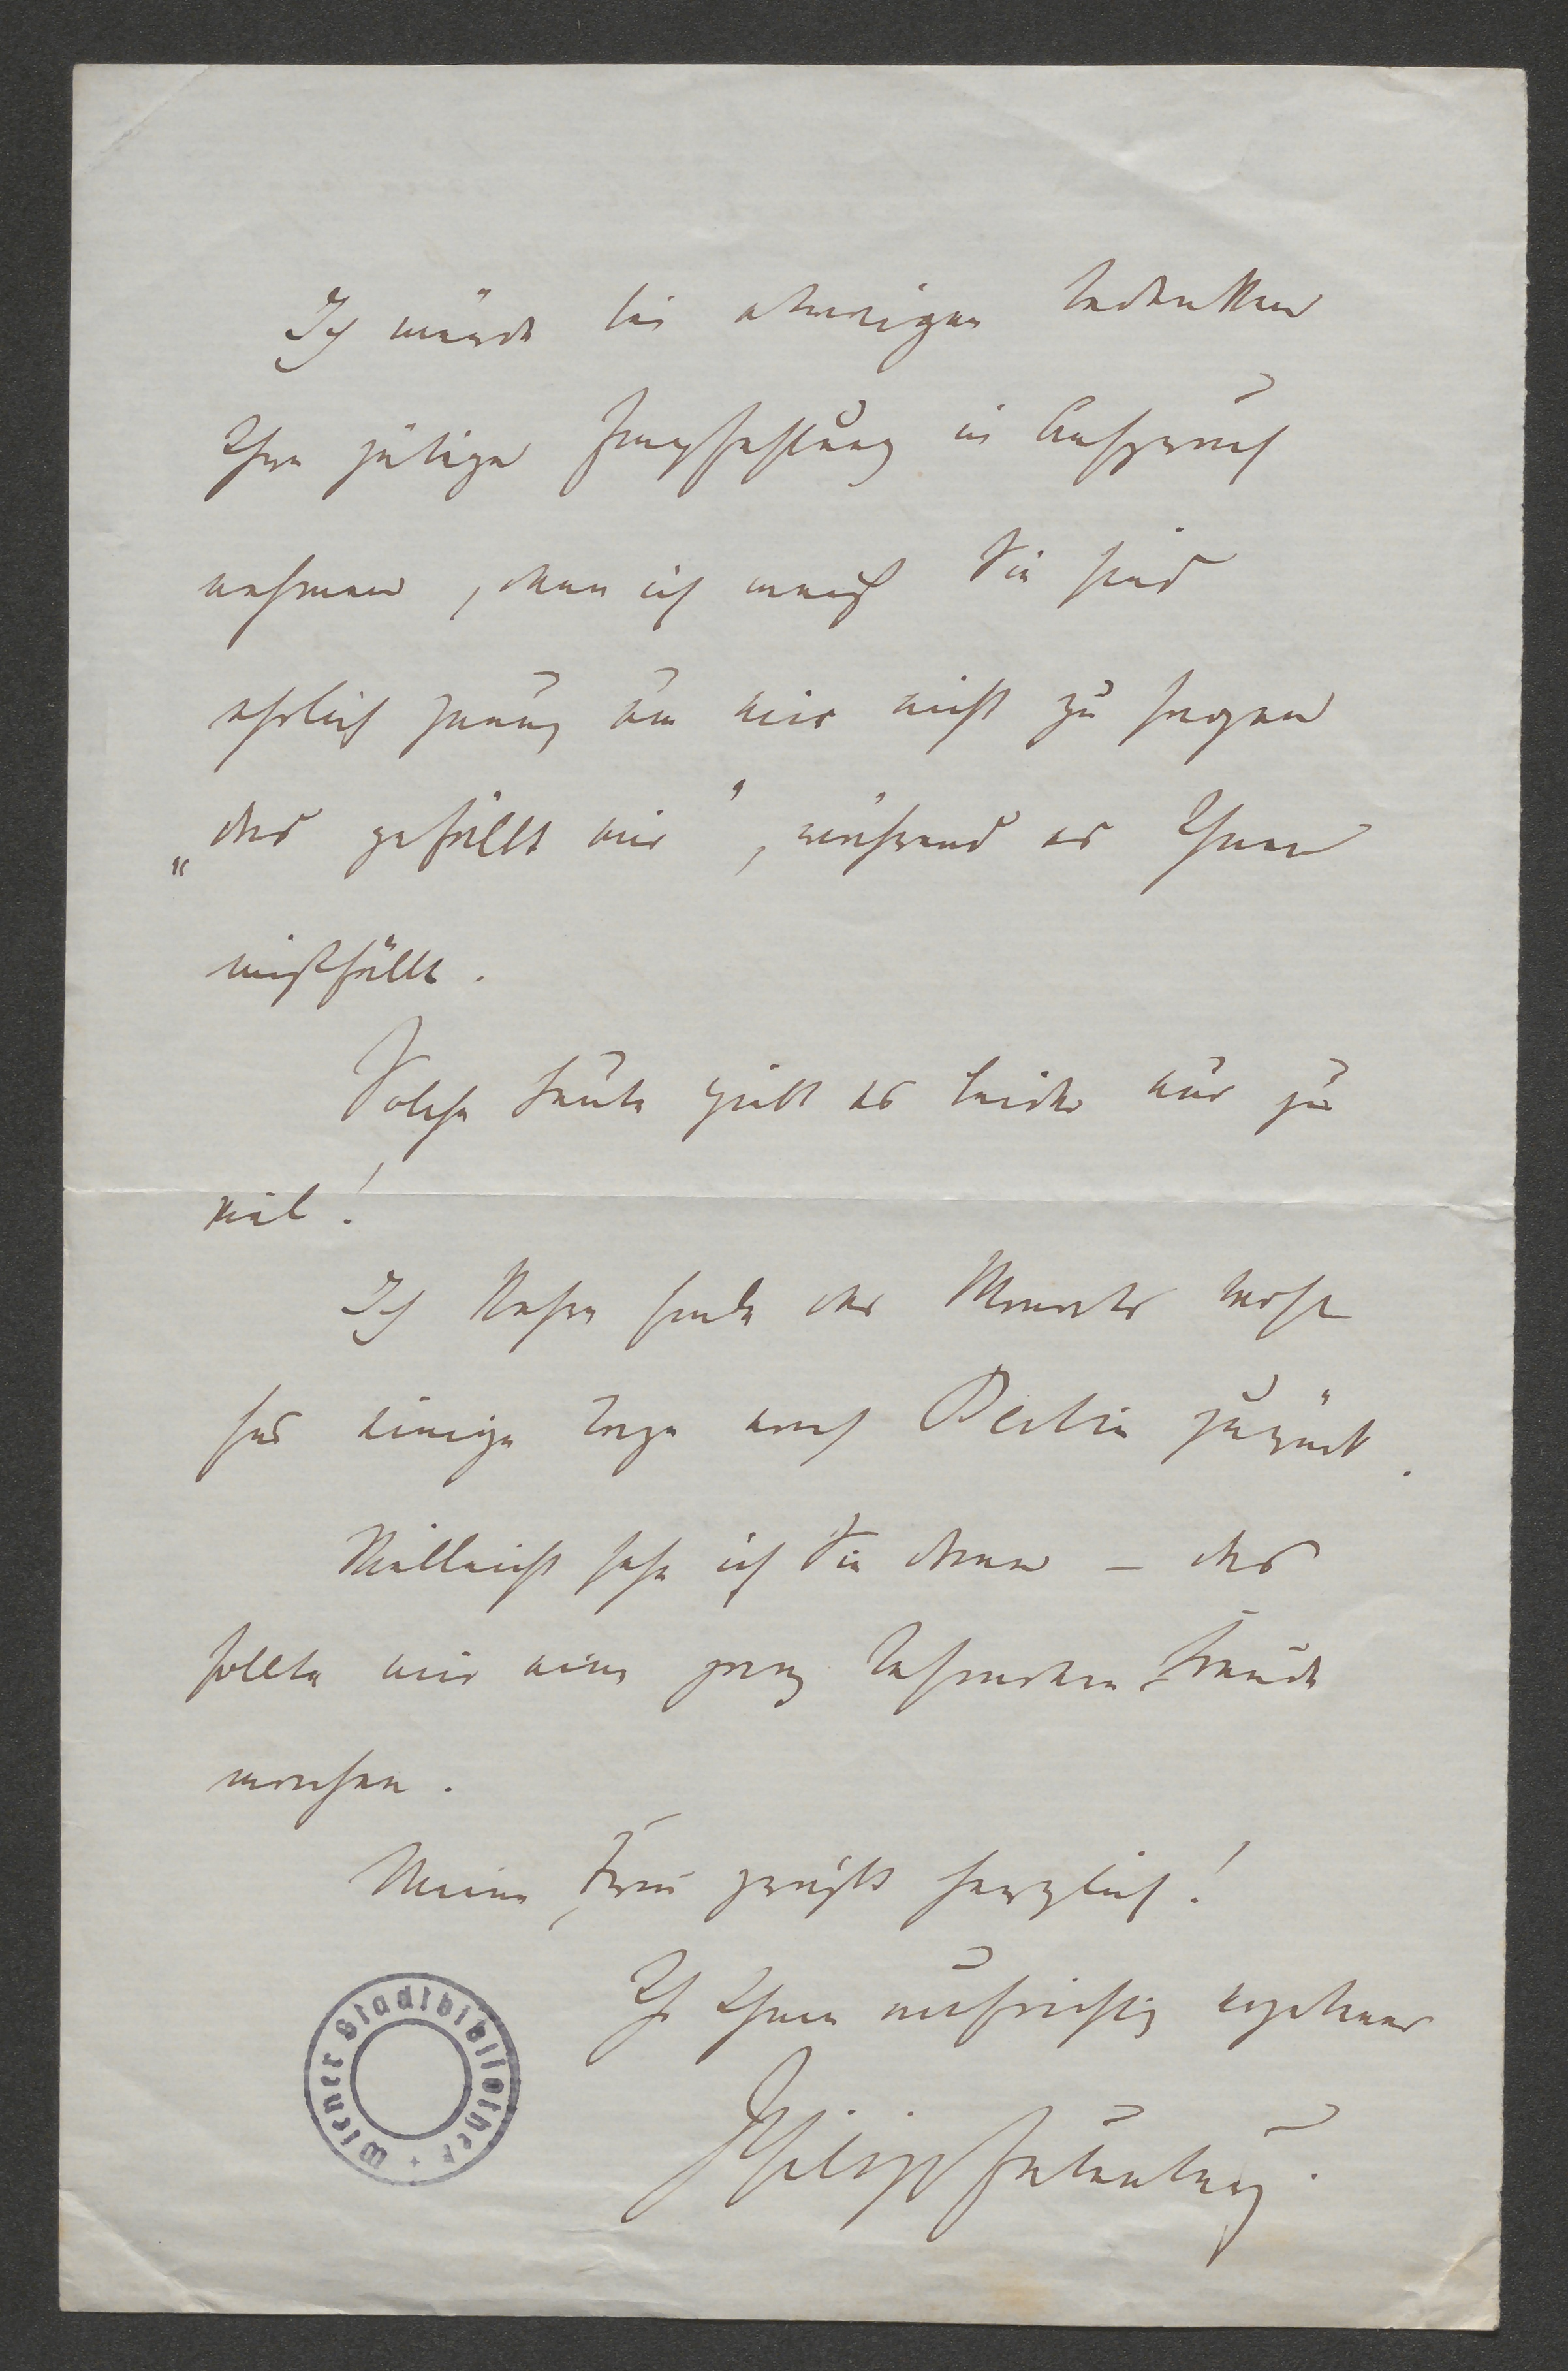 Ich würde bei etwaigen
Ihre gütige Empfehlung in Anspruch
nehmen, denn ich weiß Sie sind
ehrlich genug um mir nicht zu sagen
„das gefällt mir", während es Ihnen
mißfällt.
Solche Leute giebt es leider nur zu
viel!
Ich kehre Ende des Monats wohl
für einige Tage nach Berlin zurück.
Vielleicht sehe ich Sie dann – das
sollte mir eine ganz besondere Freude
machen.
Meine Frau grüßt herzlich!
Ihr Ihnen aufrichtig ergebener
Philipp Eulenburg.
Wiener Stadtbibliothek